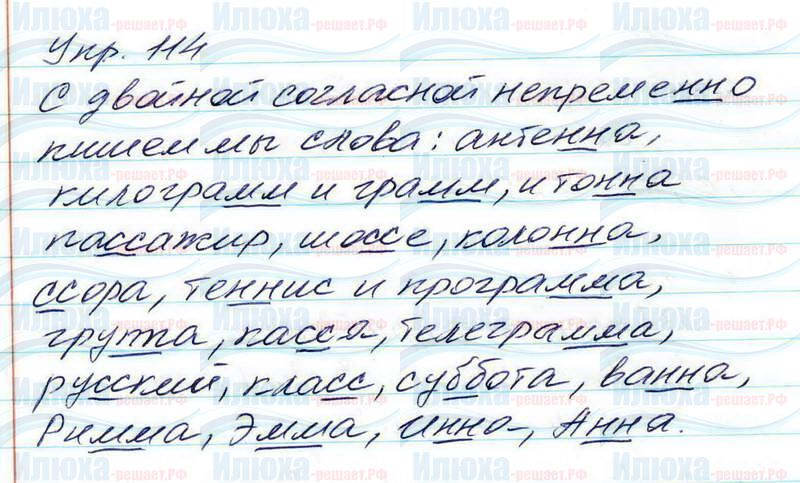 Упр. 114
С двойной согласной непременно
пишем мы слова: антенна,
килограмм и грамм, и тонна
пассажир, шоссе, колонна,
ссора, теннис и программа,
группа, касса, телеграмма,
русский, класс, суббота, ванна,
Римма, Эмма, Инна, Анна.
Илюха-решает.РФ